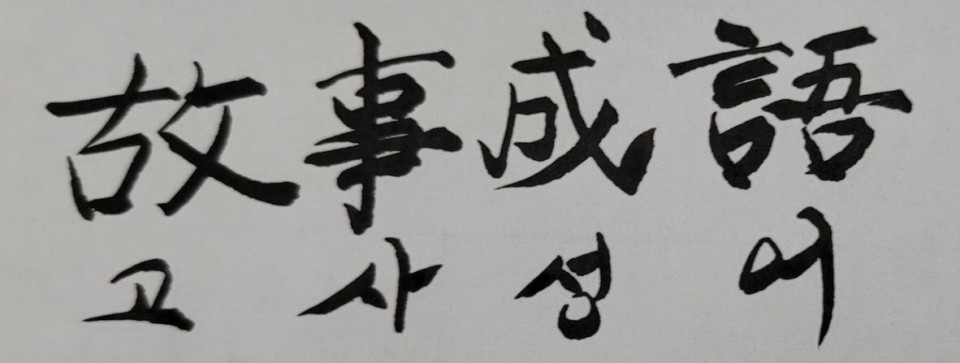 故事成語
고사성어